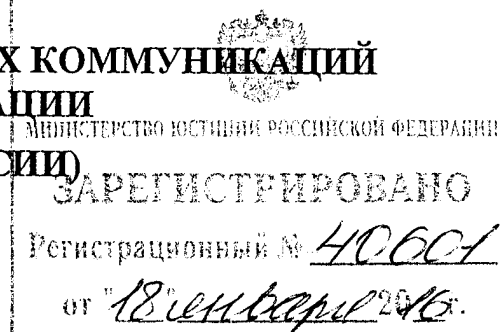 Х КОММУНИКАЦИЙ
АЦИИ
МИНИСТЕРСТВО ЮСТИЦИИ РОССИЙСКОЙ ФЕДЕРАЦИИ
СИИ)
ЗАРЕГИСТРИРОВАНО
Регистрационный № 40601
от "18" января 2016г.